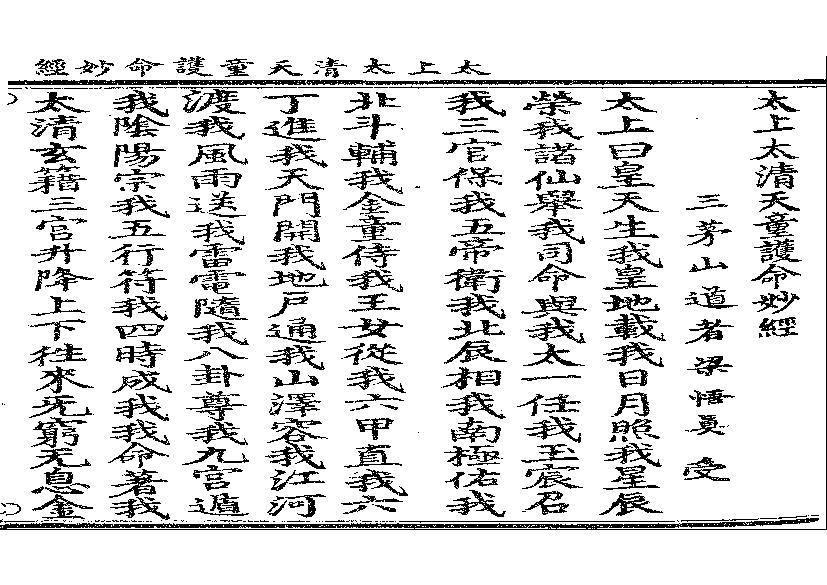 太上太清天童護命妙經
太上太清天童護命妙經
三茅山道者梁悟眞 受
太上曰皇天生我皇地載我日月照我星辰
榮我諸仙舉我司命與我太一任我玉宸召
我三官保我五帝衛我北辰相我南極佑我
北斗輔我金童侍我玉女從我六甲直我六
丁進我天門開我地戶通我山澤容我江河
渡我風雨送我雷電隨我八卦尊我九宮遁
我陰陽宗我五行符我四時成我我命著我
太清玄籍三官升降上下往來无窮无息金